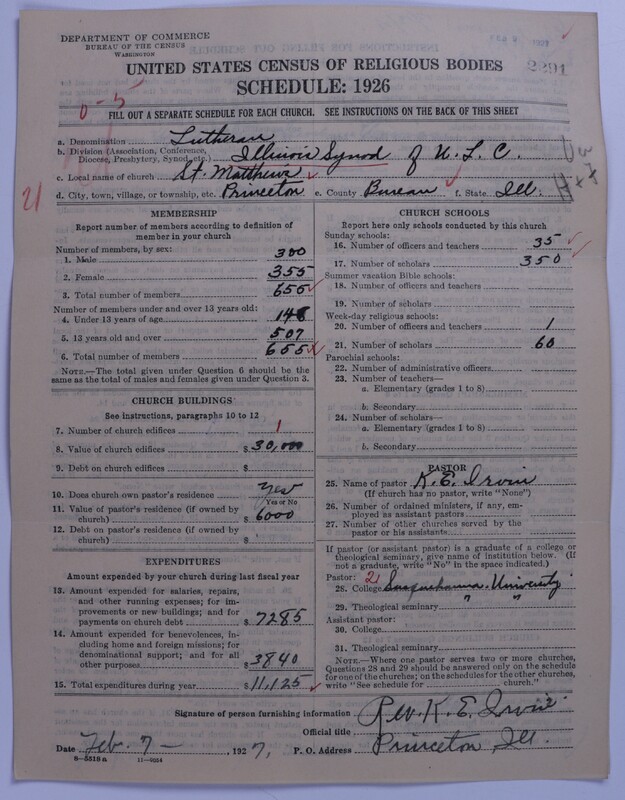 DEPARTMENT OF COMMERCE
BUREAU OF THE CENSUS
WASHINGTON
2291
UNITED STATES CENSUS OF RELIGIOUS BODIES
SCHEDULE: 1926
0-5
FILL OUT A SEPARATE SCHEDULE FOR EACH CHURCH. SEE INSTRUCTIONS ON THE BACK OF THIS SHEET
a. Denomination Lutheran
b. Division (Association, Conference,
Diocese, Presbytery, Synod, etc.) Illinois Synod of U. L. C.
c. Local name of church St. Matthews
21
d. City, town, village, or township, etc. Princeton e. County Bureau f. State Ill.
MEMBERSHIP
Report number of members according to definition of
member in your church
Number of members, by sex:
1. Male 300
2. Female 355
3. Total number of members 655
Number of members under and over 13 years old:
4. Under 13 years of age 148
5. 13 years old and over 507
6. Total number of members 655
NOTE.—The total given under Question 6 should be
same as the total of males and females given under Question 3.
CHURCH BUILDINGS
See instructions, paragraphs 10 to 12
7. Number of church edifices 1
8. Value of church edifices $ 30,000
9. Debt on church edifices $
10. Does church own pastor's residence Yes
Yes or No
11. Value of pastor's residence (if owned by
church) $ 6000
12. Debt on pastor's residence (if owned by
church) $
EXPENDITURES
Amount expended by your church during last fiscal year
13. Amount expended for salaries, repairs,
and other running expenses; for im-
provements or new buildings; and for
payments on church debt $ 7285
14. Amount expended for benevolences, in-
cluding home and foreign missions; for
denominational support; and for all
other purposes $ 3840
15. Total expenditures during year $ 11,125
CHURCH SCHOOLS
Report here only schools conducted by this church
Sunday schools:
16. Number of officers and teachers 35
17. Number of scholars 350
Summer vacation Bible schools:
18. Number of officers and teachers
19. Number of scholars
Week-day religious schools:
20. Number of officers and teachers 1
21. Number of scholars 60
Parochial schools:
22. Number of administrative officers
23. Number of teachers—
a. Elementary (grades 1 to 8)
b. Secondary
24. Number of scholars—
a. Elementary (grades 1 to 8)
b. Secondary
PASTOR
25. Name of pastor K. E. Irvin
(If church has no pastor, write "None")
26. Number of ordained ministers, if any, em-
ployed as assistant pastors
27. Number of other churches served by the
pastor or his assistants
If pastor (or assistant pastor) is a graduate of a college or
theological seminary, give name of institution below. (If
not a graduate, write "No" in the space indicated.)
Pastor: 21
28. College Susquehanna University
29. Theological seminary " "
Assistant pastor:
30. College
31. Theological seminary
NOTE.—Where one pastor serves two or more churches,
Questions 28 and 29 should be answered only on the schedule
for one of the churches; on the schedules for the other churches,
write "See schedule for church."
Signature of person furnishing information Rev. K. E. Irvin
Official title
Date Feb. 7 — , 1927, P. O. Address Princeton, Ill.
8-5518 a 11-9554